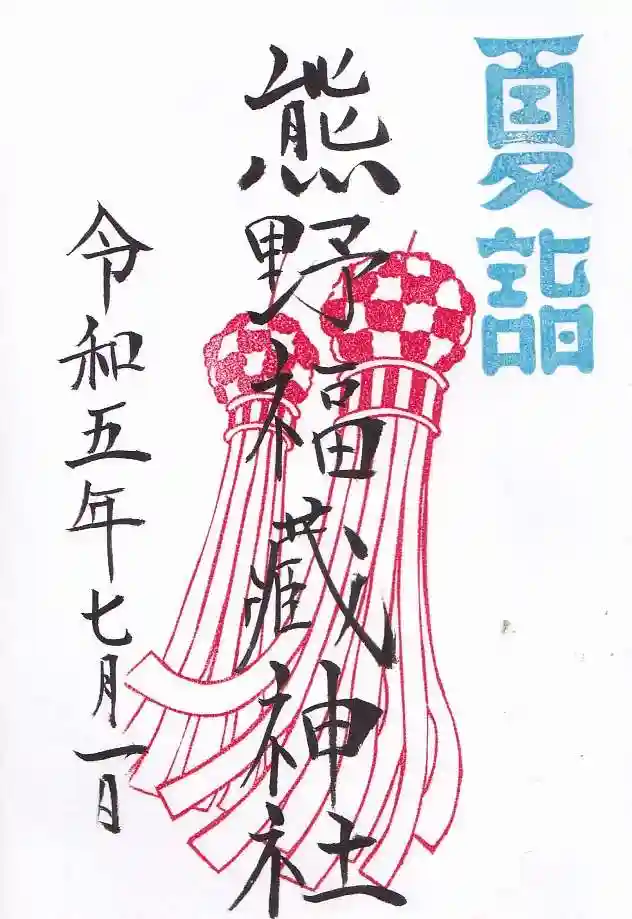 夏詣
熊野福藏神社
令和五年七月一日